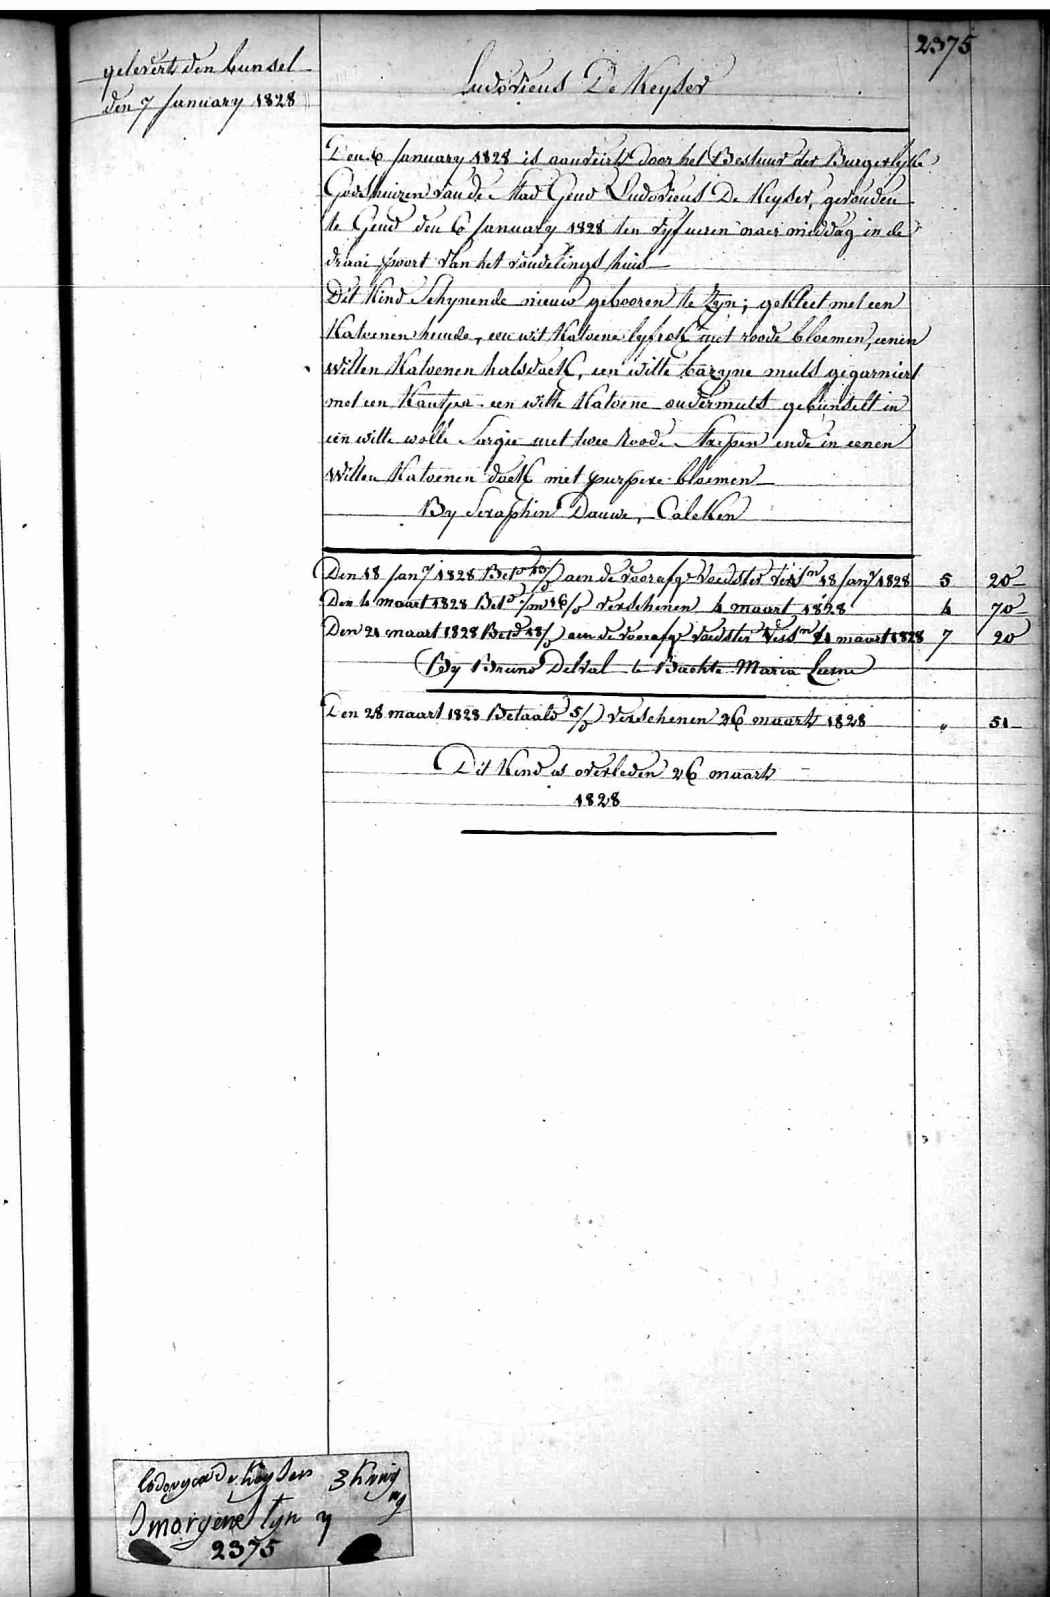 2375
gelevert den bunsel
den 7 January 1828
Ludovicus De Keyser
Den 6 January 1828 is aanveirt door het Bestuur der Burgerlyke
Godshuizen van de Stad Gend Ludovicus De Keyser, gevonden
te Gend den 6 January 1828 ten vyf ueren naer middag in de
draai poort van het vondelings huis
Dit Kind Schynende nieuw gebooren te zyn; gekleet met een
Katoenen hemde, een wit Katoene lyfrok met roode bloemen, eenen
witten Katoenen halsdoek, een witte bazyne muts gegarniert
met een Kantjen een witte Katoene ondermuts gebunselt in
een witte wolle Sargie met twee Roode Strepen ende in eenen
Witten Katoenen doek met purpere bloemen
By Seraphin Dauwe, Calcken
Den 18 Jany 1828 Betd 13/ aen de voorafge Voedster 18 Jany 1828 5 20
Den 4 maart 1828 Betd 1/m 16/ verschenen 4 maart 1828 4 70
Den 21 maart 1828 Betd 18/ aen de voorafge Voedster 21 maart 1828 7 20
By Bruno Delval te Bachte Maria Leerne
Den 28 maart 1828 Betaald 5/ verschenen 26 maart 1828 " 51
Dit Kind is overleden 26 maart
1828
2375